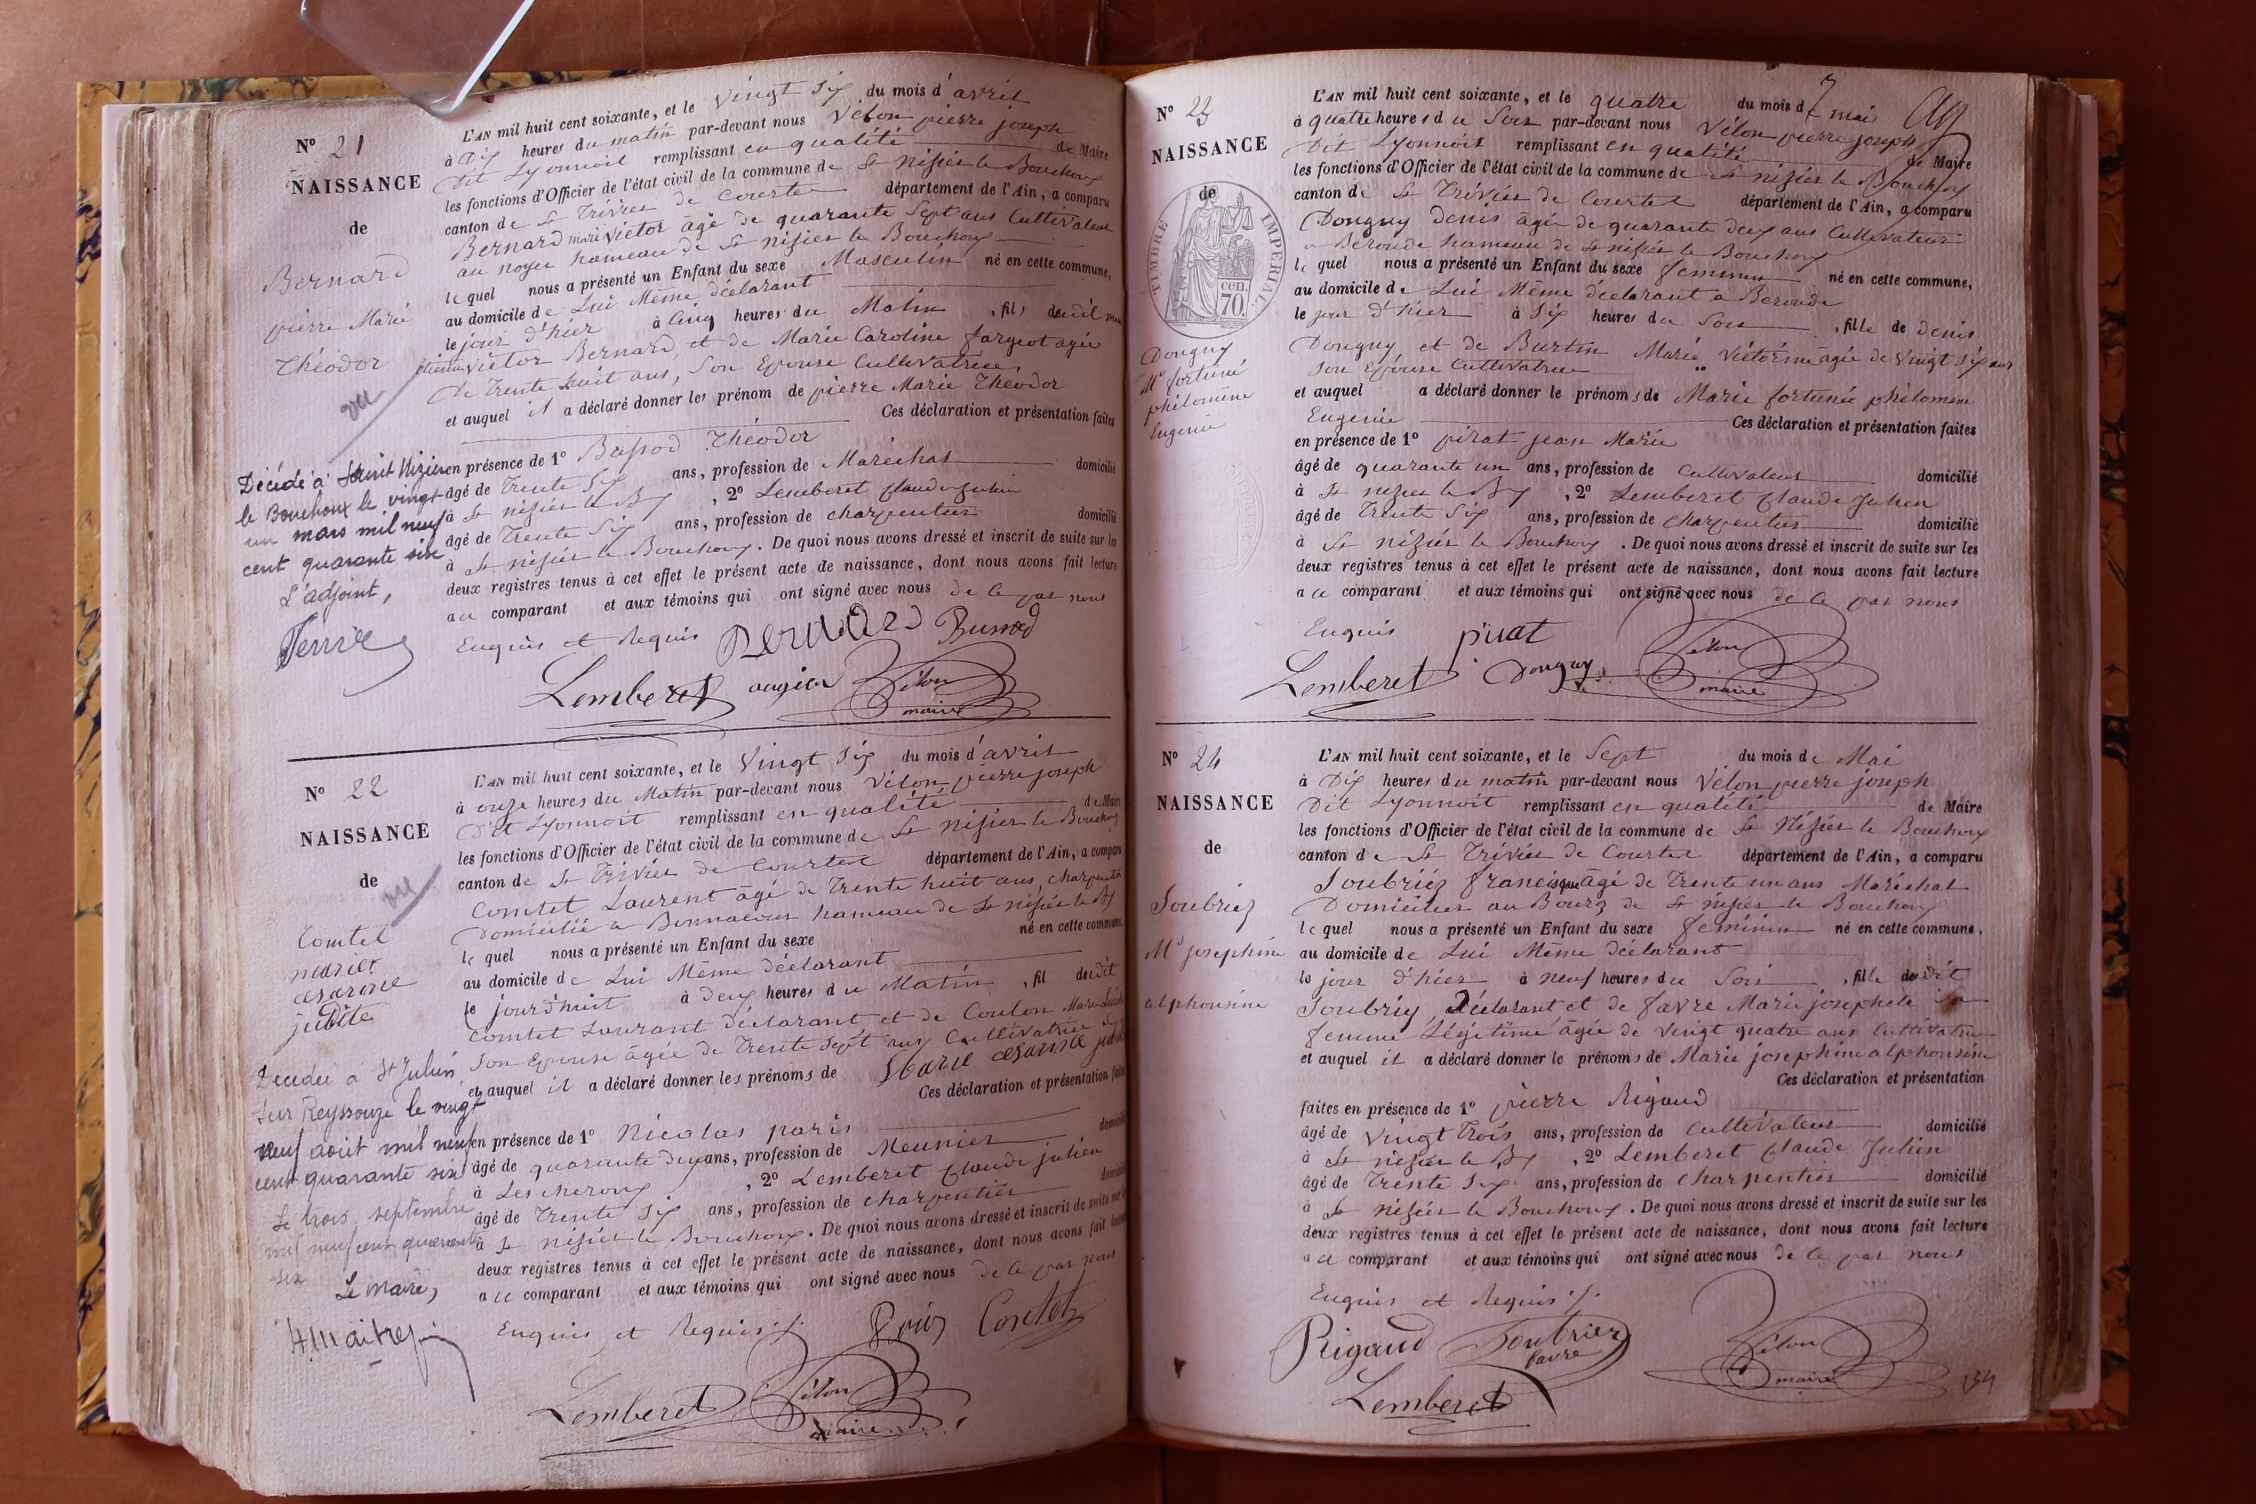 N° 21
NAISSANCE
de
Bernard
pierre Marie
Théodor
vu
Décédé à Saint Nizier
le Bouchoux le vingt
un mars mil neuf
cent quarante six
L'adjoint,
L'AN mil huit cent soixante, et le vingt six du mois d'avril
à Dix heures du matin par-devant nous Vélon pierre joseph
Dit Lyonnoit remplissant en qualité de Maire
les fonctions d'Officier de l'état civil de la commune de St nizier le Bouchoux
canton de St Trivier de Courtes département de l'Ain, a comparu
Bernard marie victor âgé de quarante Sept ans Cultivateur
au noyer hameau de St nizier le Bouchoux
lequel nous a présenté un Enfant du sexe Masculin né en cette commune,
au domicile de Lui Même déclarant
le jour d'hier à Cinq heures du Matin, fils dudit
victor Bernard et de Marie Caroline fargeot agée
de Trente huit ans, Son Epouse Cultivatrice,
et auquel il a déclaré donner les prénom de pierre Marie Théodor
Ces déclaration et présentation faites
en présence de 1° Théodor
âgé de Trente Six ans, profession de Maréchal domicilié
à St nizier le Bx, 2° Lemberet Claude Julien
âgé de Trente Six ans, profession de charpentier domicilié
à St nizier le Bouchoux. De quoi nous avons dressé et inscrit de suite sur les
deux registres tenus à cet effet le présent acte de naissance, dont nous avons fait lecture
au comparant et aux témoins qui ont signé avec nous de ce par nous
Enquis et Requis Bernard
Lemberet Vélon
maire
N° 22
NAISSANCE
de
vu
Comtet
marie
cesarine
judite
Decedée a St Julien
sur Reyssouze le vingt
neuf août mil neuf
cent quarante six
Le trois septembre
mil neuf cent quarante
six
Le maire,
L'AN mil huit cent soixante, et le Vingt Six du mois d'avril
à onze heures du Matin par-devant nous Vélon pierre joseph
Dit Lyonnoit remplissant en qualité de Maire
les fonctions d'Officier de l'état civil de la commune de St nizier le Bouchoux
canton de St Trivier de Courtes département de l'Ain, a comparu
Comtet Laurent âgé de Trente huit ans, charpentier
Domicilié a Bonnacour hameau de St nizier le Bx
lequel nous a présenté un Enfant du sexe né en cette commune,
au domicile de Lui Même déclarant
le jourd'huit à Deux heures du Matin, fil dudit
Comtet Laurant déclarant et de Coulon Marie
Son Epouse âgée de Trente Sept ans Cultivatrice
et auquel il a déclaré donner les prénoms de Marie cesarine
Ces déclaration et présentation faites
en présence de 1° Nicolas paris
âgé de quarante Deux ans, profession de Meunier domicilié
à Lescheroux, 2° Lemberet Claude julien
âgé de Trente Six ans, profession de charpentier domicilié
à St nizier le Bouchoux. De quoi nous avons dressé et inscrit de suite sur les
deux registres tenus à cet effet le présent acte de naissance, dont nous avons fait lecture
au comparant et aux témoins qui ont signé avec nous de ce par nous
Enquis et Requis Comtet
Lemberet Vélon
maire
N° 23
NAISSANCE
de
TIMBRE IMPERIAL
70 cen.
Dongny
Me fortuné
philomène
Eugenie
L'AN mil huit cent soixante, et le quatre du mois d mai
à quatre heures du Soir par-devant nous Vélon pierre joseph
Dit Lyonnoit remplissant en qualité de Maire
les fonctions d'Officier de l'état civil de la commune de St nizier le Bouchoux
canton de St Trivier de Courtes département de l'Ain, a comparu
Dongny denis âgé de quarante deux ans Cultivateur
a Beronde hameau de St nizier le Bouchoux
lequel nous a présenté un Enfant du sexe feminin né en cette commune,
au domicile de Lui Même déclarant a Beronde
le jour d'hier à Six heures du Soir, fille de denis
Dongny et de Burtin Marie Victorine âgée de vingt Six ans
Son Epouse Cultivatrice
et auquel a déclaré donner le prénoms de Marie fortunée philomène
Eugenie Ces déclaration et présentation faites
en présence de 1° pirat jean Marie
âgé de quarante un ans, profession de Cultivateur domicilié
à St nizier le Bx, 2° Lemberet Claude Julien
âgé de Trente Six ans, profession de Charpentier domicilié
à St nizier le Bouchoux. De quoi nous avons dressé et inscrit de suite sur les
deux registres tenus à cet effet le présent acte de naissance, dont nous avons fait lecture
au comparant et aux témoins qui ont signé avec nous de ce par nous
Enquis pirat
Lemberet Dongny Vélon
maire
N° 24
NAISSANCE
de
Soubriez
Me josephine
alphonsine
L'AN mil huit cent soixante, et le Sept du mois de Mai
à Dix heures du matin par-devant nous Vélon pierre joseph
Dit Lyonnoit remplissant en qualité de Maire
les fonctions d'Officier de l'état civil de la commune de St Nizier le Bouchoux
canton de St Trivier de Courtes département de l'Ain, a comparu
Soubriéz françisque âgé de Trente un ans Maréchal
Domicilier au Bourg de St nizier le Bouchoux
lequel nous a présenté un Enfant du sexe féminin né en cette commune,
au domicile de Lui Même déclarant
le jour d'hier à neuf heures du Soir, fille dudit
Soubriez Déclarant et de favre Marie josephete Sa
femme Légitime âgée de vingt quatre ans Cultivatrice
et auquel il a déclaré donner le prénoms de Marie josephine alphonsine
Ces déclaration et présentation
faites en présence de 1° pierre Rigaud
âgé de vingt Trois ans, profession de Cultivateur domicilié
à St nizier le Bx, 2° Lemberet Claude Julien
âgé de Trente Six ans, profession de Charpentier domicilié
à St nizier le Bouchoux. De quoi nous avons dressé et inscrit de suite sur les
deux registres tenus à cet effet le présent acte de naissance, dont nous avons fait lecture
au comparant et aux témoins qui ont signé avec nous de ce par nous
Enquis et Requis
Rigaud Soubriez
favre
Vélon
maire
Lemberet
134